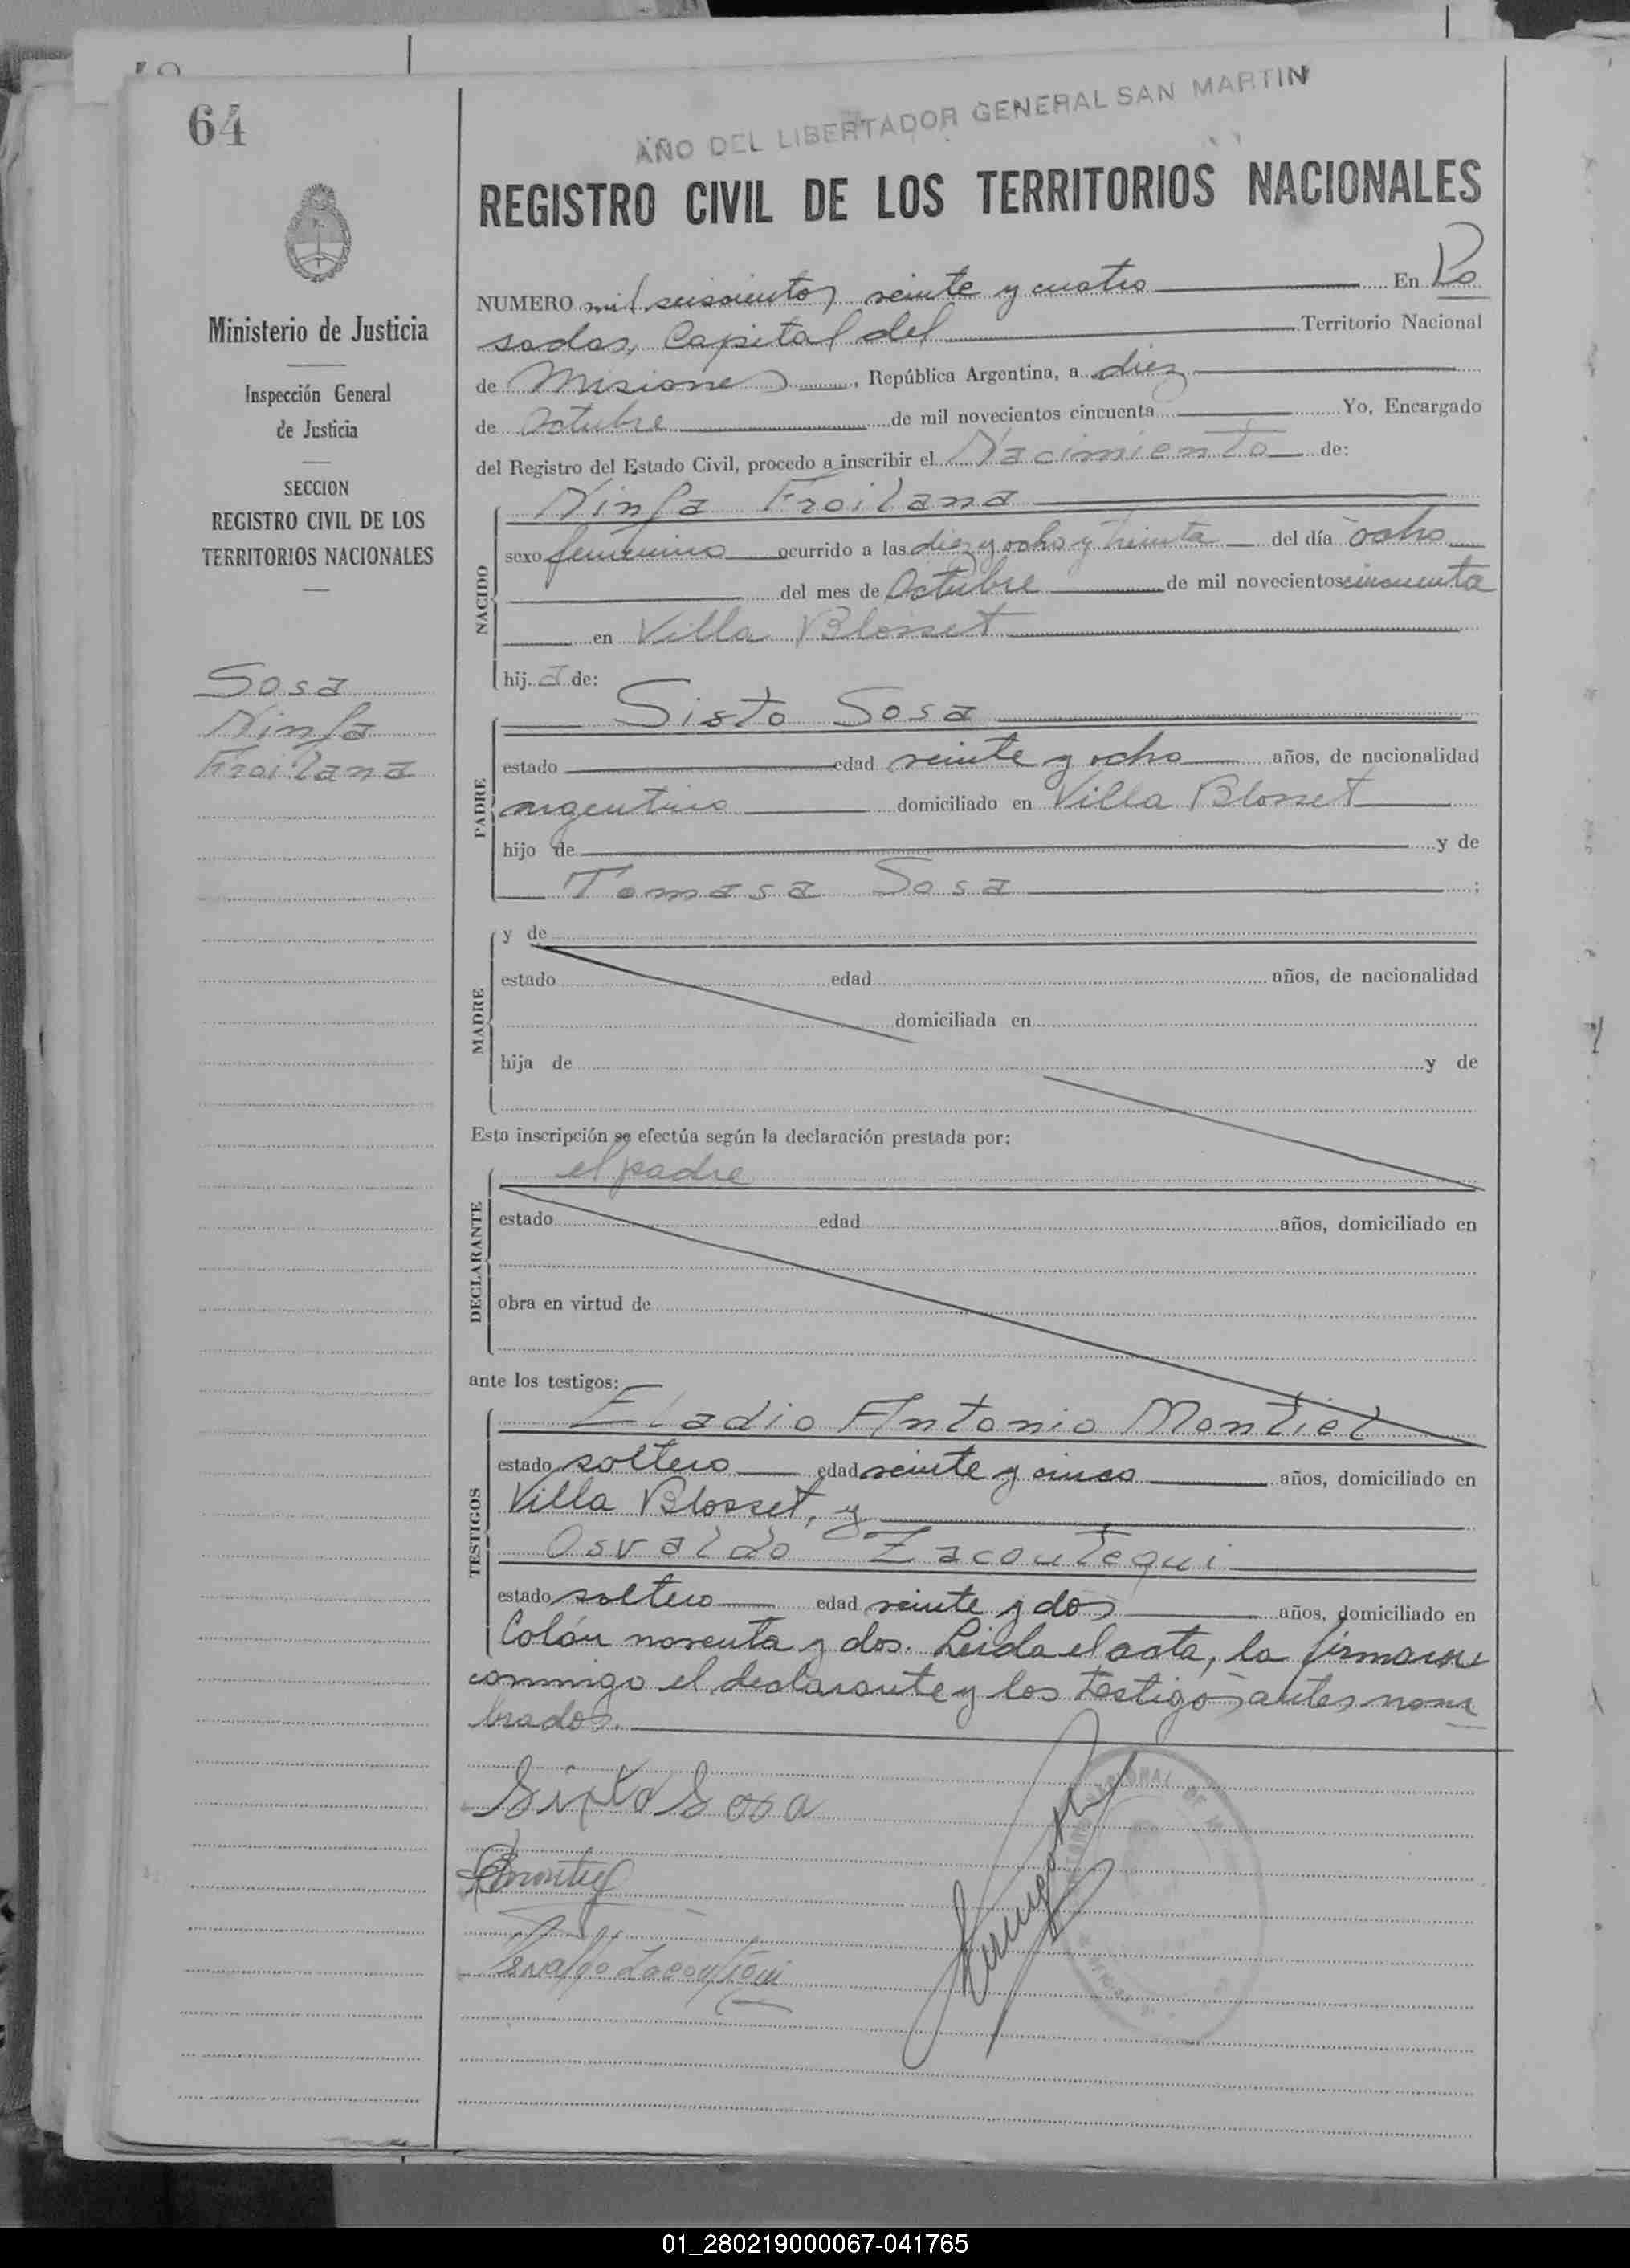 64
AÑO DEL LIBERTADOR GENERAL SAN MARTIN
REGISTRO CIVIL DE LOS TERRITORIOS NACIONALES
Ministerio de Justicia
Inspección General
de Justicia
SECCION
REGISTRO CIVIL DE LOS
TERRITORIOS NACIONALES
Sosa
Ninfa
Froilana
NUMERO mil seiscientos veinte y cuatro En Po
sadas, Capital del Territorio Nacional
de Misiones, República Argentina, a diez
de Octubre de mil novecientos cincuenta Yo, Encargado
del Registro del Estado Civil, procedo a inscribir el Nacimiento de:
NACIDO
Ninfa Froilana
sexo femenino ocurrido a las diez y ocho y treinta del día ocho
del mes de Octubre de mil novecientos cincuenta
en Villa Blosset
hij a de:
PADRE
Sisto Sosa
estado edad veinte y ocho años, de nacionalidad
argentino domiciliado en Villa Blosset
hijo de y de
Tomasa Sosa ;
MADRE
y de
estado edad años, de nacionalidad
domiciliada en
hija de y de
Esta inscripción se efectúa según la declaración prestada por:
DECLARANTE
el padre
estado edad años, domiciliado en
obra en virtud de
ante los testigos:
TESTIGOS
Eladio Antonio Montiel
estado soltero edad veinte y cinco años, domiciliado en
Villa Blosset, y
Osvaldo Zacoutegui
estado soltero edad veinte y dos años, domiciliado en
Colón noventa y dos. Leida el acta, la firmaron
conmigo el declarante y los testigos antes nom
brados.
Sixto Sosa
EAMontiel
Osvaldo Zacoutegui
01_280219000067-041765